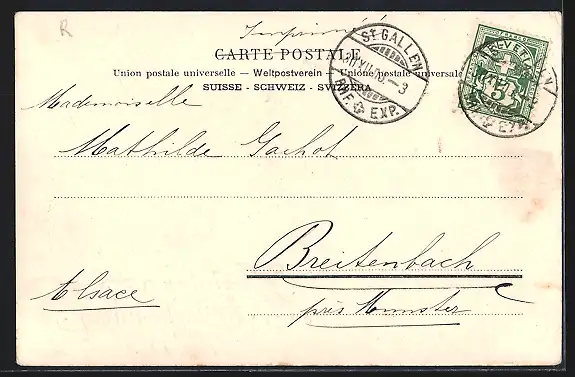 R
Imprimé
CARTE POSTALE
Union postale universelle — Weltpostverein — Unione postale universale
SUISSE - SCHWEIZ - SVIZZERA
ST GALLEN
BRF. EXP.
5
Mademoiselle
Mathilde Gachot
Breitenbach
Elsace
près Munster